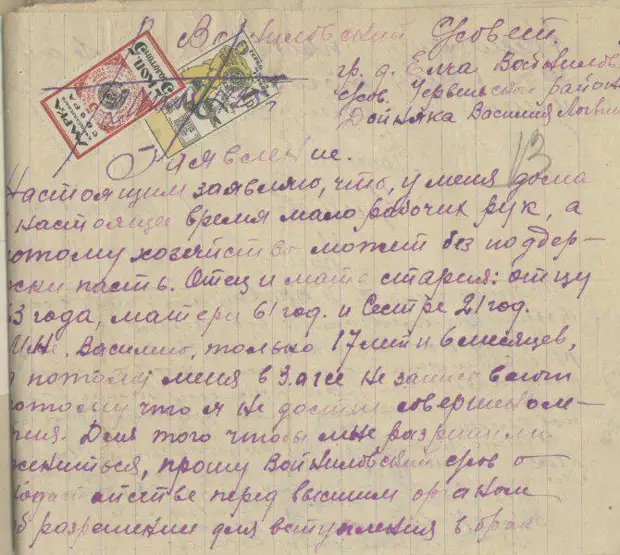 В Войниловский С/совет.
гр. д. Елча Войнилов
с/сов. Червенского район
Дойняка Василия Логвин
13
Заявление.
Настоящим заявляю, что, у меня дома
настоящее время мало рабочих рук, а
потому хозяйство может без поддер-
жки пасть. Отец и мать старыя: отцу
3 года, матери 61 год. и Сестре 21 год.
Мне, Василию, только 17 лет и 6 месяцев,
потому меня в Загсе не записывают
потому что я не достиг совершенноле-
тия. Для того чтобы мне разрешили
жениться, прошу Войниловский с/сов о
ходатайстве перед высшим органом
об разрешении для вступления в брак
МАРКА
5 КОП.
ЗОЛОТОМ